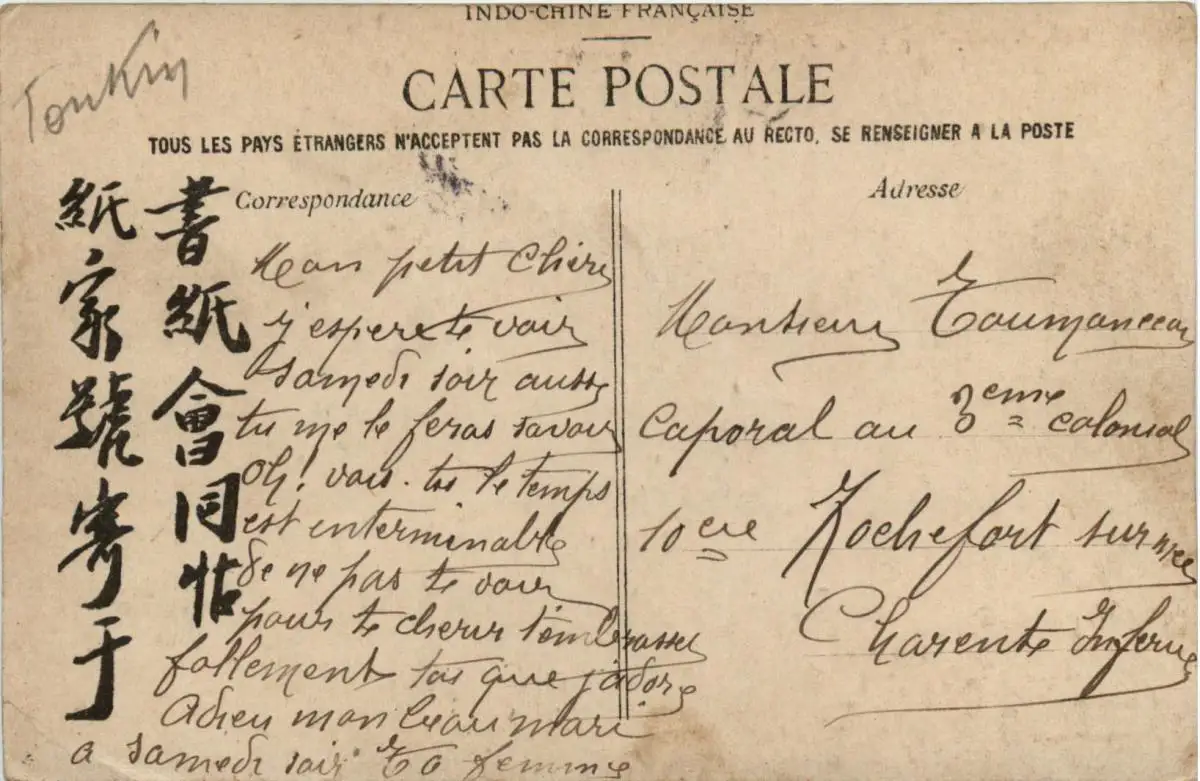 INDO-CHINE FRANÇAISE
Tonkin
CARTE POSTALE
TOUS LES PAYS ÉTRANGERS N'ACCEPTENT PAS LA CORRESPONDANCE AU RECTO, SE RENSEIGNER A LA POSTE
Correspondance
書紙會同帖
紙家號寄于
Mon petit Chéri
j'espere te voir
samedi soir aussi
tu me le feras savoir
Oh! vois-tu le temps
est interminable
de ne pas te voir
pour te cherir t'embrasser
follement toi que j'adore
Adieu mon beau mari
a samedi soir Ta femme
Adresse
Monsieur
caporal au 3eme colonial
10eme Rochefort sur mer
Charente Inferieu